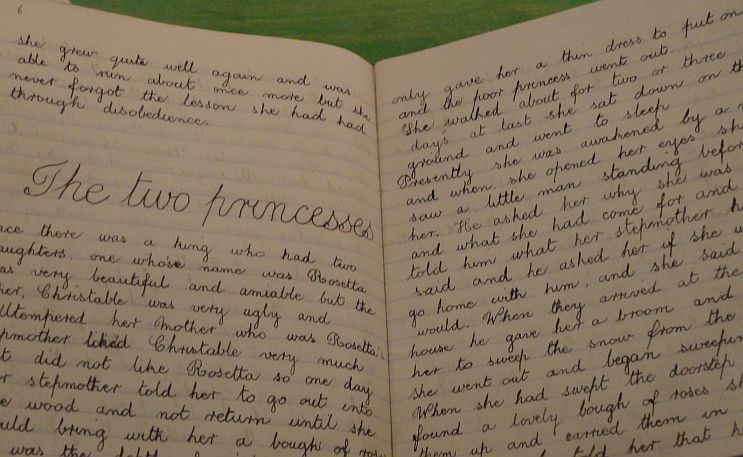 6
she grew quite well again and was
able to run about once more but she
never forgot the lesson she had had
through disobedience.
The two princesses
nce there was a king who had two
aughters, one whose name was Rosetta
as very beautiful and amiable but the
her, Christable was very ugly and
illtempered her mother who was Rosetta's
pmother liked Christable very much
t did not like Rosetta so one day
r stepmother told her to go out into
e wood and not return until she
uld bring with her a bough of roses
was the
only gave her a thin dress to put on
and the poor princess went out.
She walked about for two or three
days at last she sat down on th
ground and went to sleep
Presently she was awakened by a
and when she opened her eyes sh
saw a little man standing befor
her. He asked her why she was
and what she had come for and
told him what her stepmother h
said and he asked her if she w
go home with him, and she said
would. When they arrived at the
house he gave her a broom and
her to sweep the snow from the
she went out and began sweepin
When she had swept the doorstep
found a lovely bough of roses sh
them up and carried them in
told her that h